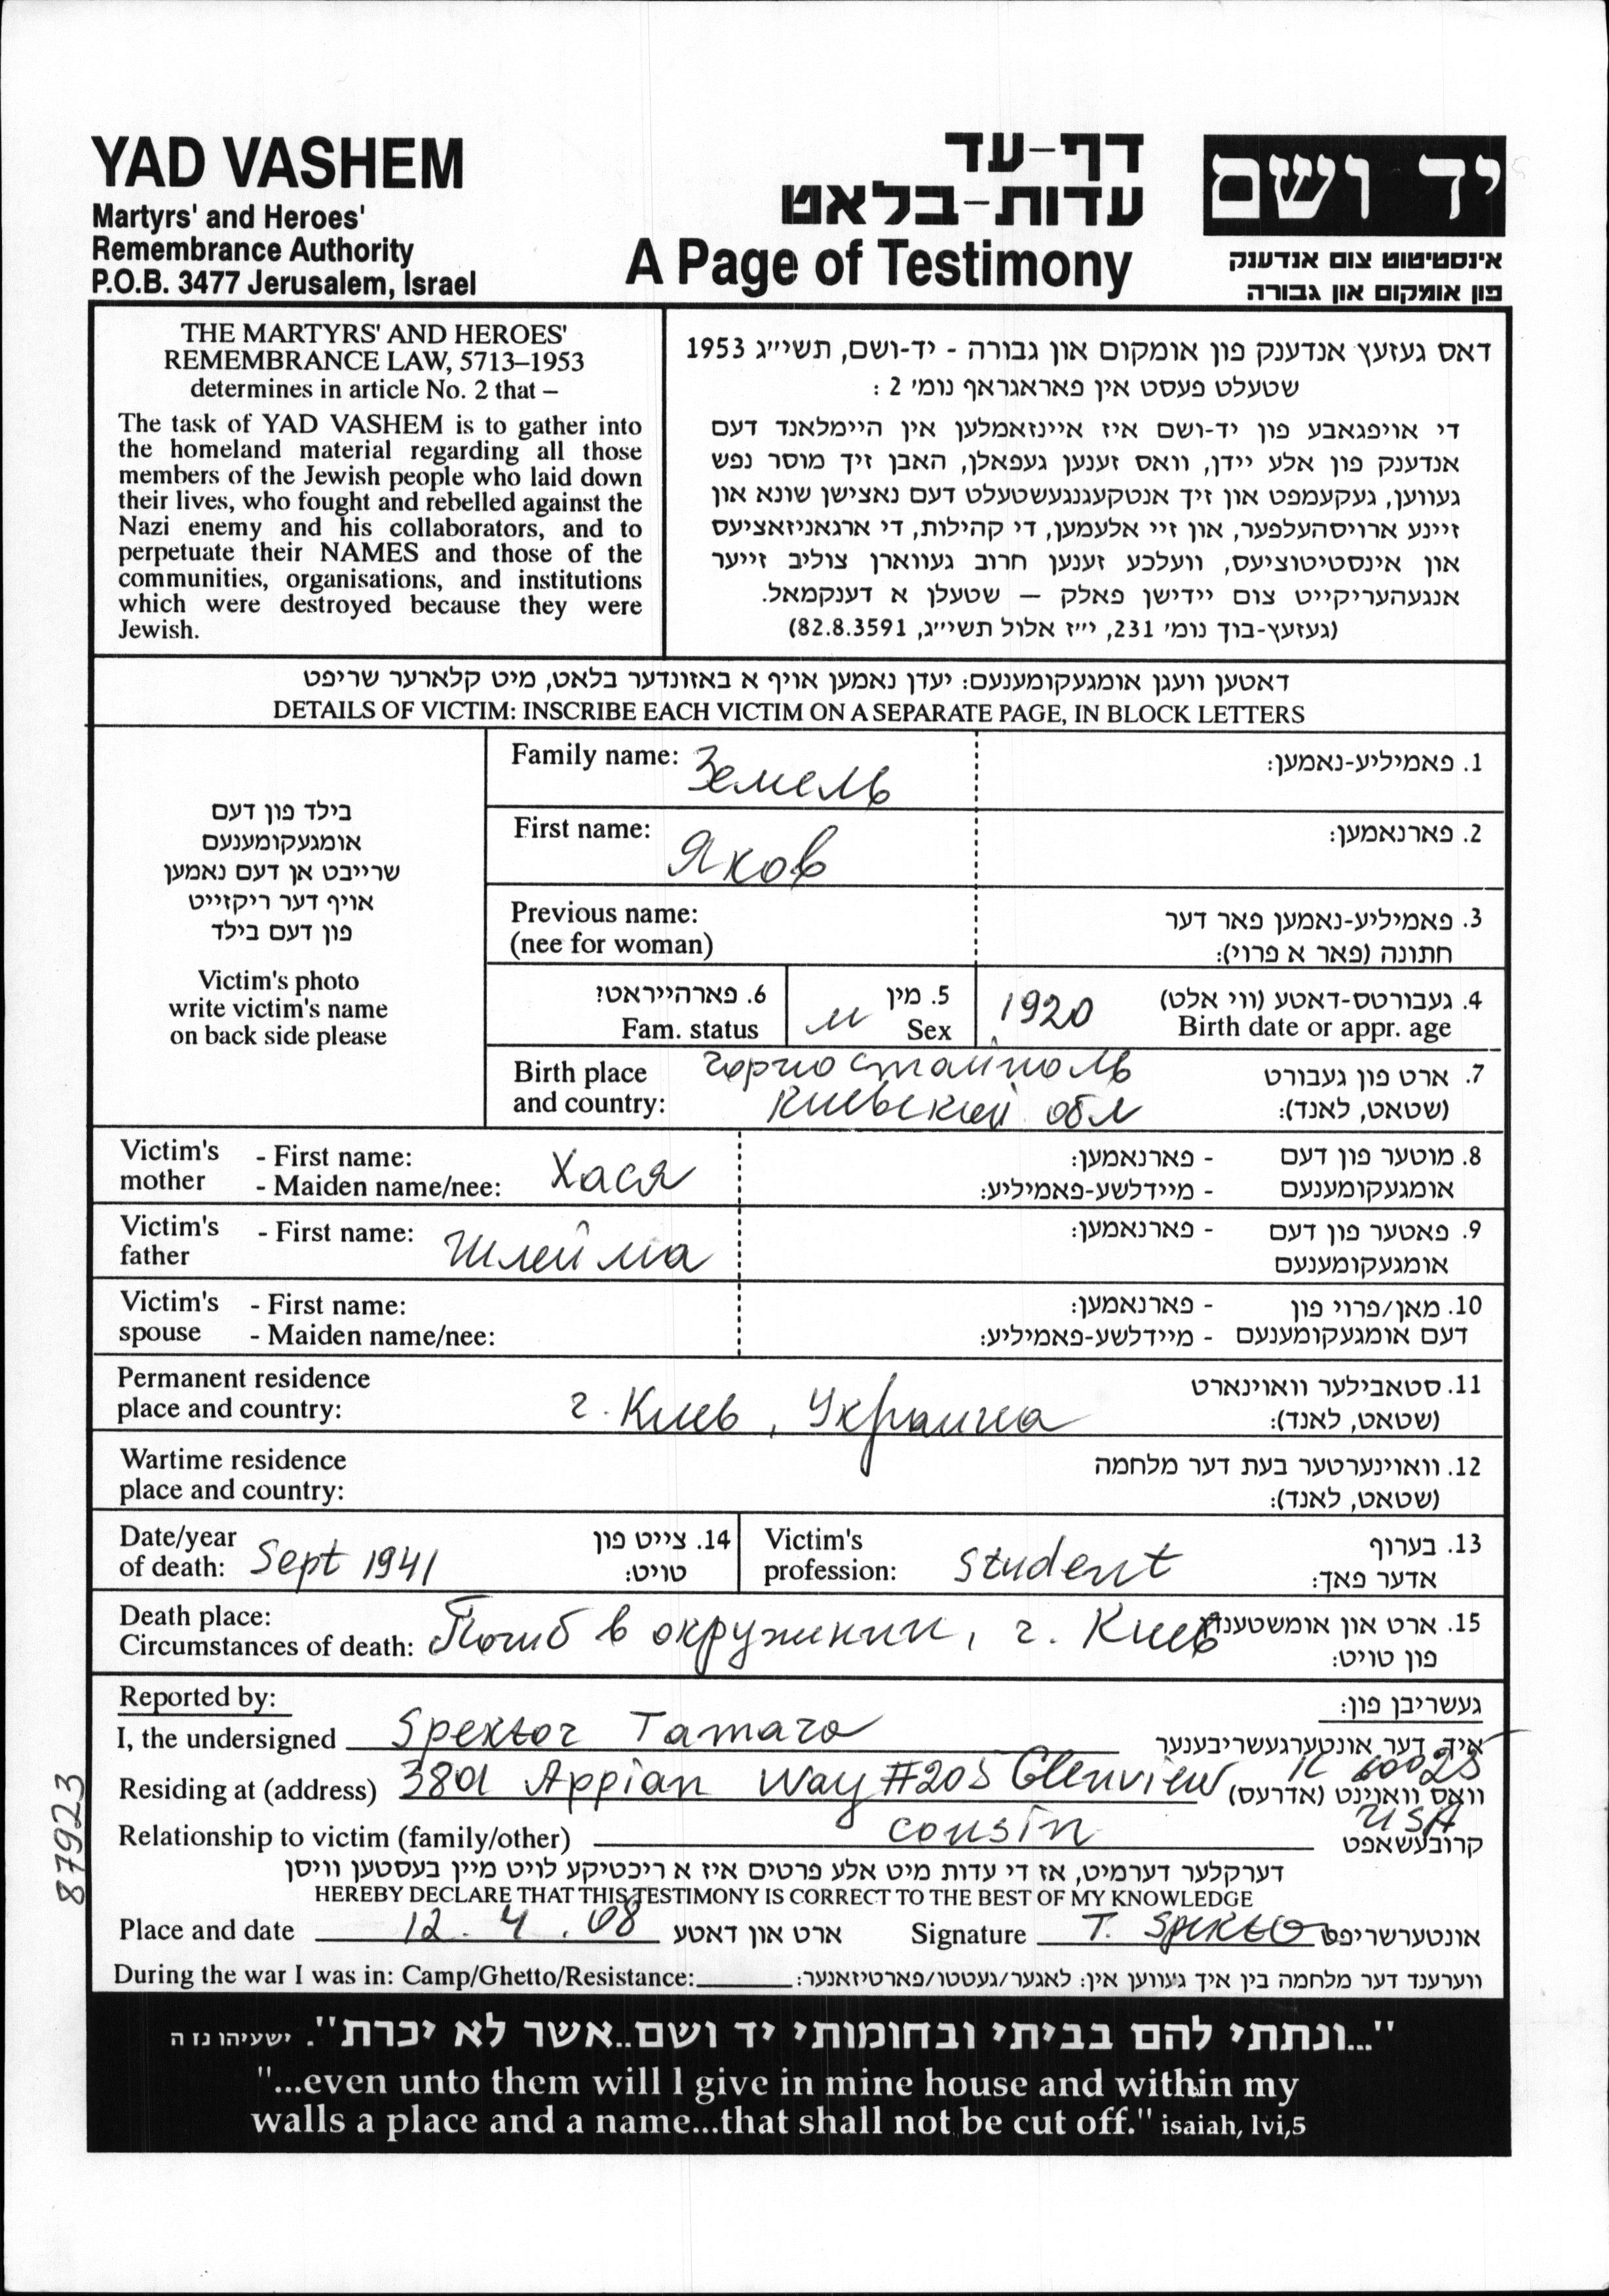 YAD VASHEM
Martyrs' and Heroes'
Remembrance Authority
P.O.B. 3477 Jerusalem, Israel
דף-עד
עדות-בלאט
A Page of Testimony
יד ושם
אינסטיטוט צום אנדענק
פון אומקום און גבורה
THE MARTYRS' AND HEROES'
REMEMBRANCE LAW, 5713–1953
determines in article No. 2 that –
The task of YAD VASHEM is to gather into
the homeland material regarding all those
members of the Jewish people who laid down
their lives, who fought and rebelled against the
Nazi enemy and his collaborators, and to
perpetuate their NAMES and those of the
communities, organisations, and institutions
which were destroyed because they were
Jewish.
דאס געזעץ אנדענק פון אומקום און גבורה - יד-ושם, תשי״ג 1953
שטעלט פעסט אין פאראגראף נומ׳ 2 :
די אויפגאבע פון יד-ושם איז איינזאמלען אין היימלאנד דעם
אנדענק פון אלע יידן, וואס זענען געפאלן, האבן זיך מוסר נפש
געווען, געקעמפט און זיך אנטקעגנגעשטעלט דעם נאצישן שונא און
זיינע ארויסהעלפער, און זיי אלעמען, די קהילות, די ארגאניזאציעס
און אינסטיטוציעס, וועלכע זענען חרוב געווארן צוליב זייער
אנגעהעריקייט צום יידישן פאלק — שטעלן א דענקמאל.
(געזעץ-בוך נומ׳ 231, י״ז אלול תשי״ג, 82.8.3591)
דאטען וועגן אומגעקומענעם: יעדן נאמען אויף א באזונדער בלאט, מיט קלארער שריפט
DETAILS OF VICTIM: INSCRIBE EACH VICTIM ON A SEPARATE PAGE, IN BLOCK LETTERS
בילד פון דעם
אומגעקומענעם
שרייבט אן דעם נאמען
אויף דער ריקזייט
פון דעם בילד
Victim's photo
write victim's name
on back side please
Family name: Земель 1. פאמיליע-נאמען:
First name: Яков 2. פארנאמען:
Previous name: 3. פאמיליע-נאמען פאר דער
(nee for woman) חתונה (פאר א פרוי):
6. פארהייראט? 5. מין 1920 4. געבורטס-דאטע (ווי אלט)
Fam. status м Sex Birth date or appr. age
Birth place Горностайполь 7. ארט פון געבורט
and country: Киевский обл (שטאט, לאנד):
Victim's - First name: Хася - פארנאמען: 8. מוטער פון דעם
mother - Maiden name/nee: - מיידלשע-פאמיליע: אומגעקומענעם
Victim's - First name: Шлейма - פארנאמען: 9. פאטער פון דעם
father אומגעקומענעם
Victim's - First name: - פארנאמען: 10. מאן/פרוי פון
spouse - Maiden name/nee: - מיידלשע-פאמיליע: דעם אומגעקומענעם
Permanent residence 11. סטאבילער וואוינארט
place and country: г. Киев, Украина (שטאט, לאנד):
Wartime residence 12. וואוינערטער בעת דער מלחמה
place and country: (שטאט, לאנד):
Date/year 14. צייט פון Victim's 13. בערוף
of death: Sept 1941 טויט: profession: student אדער פאך:
Death place: 15. ארט און אומשטענדן
Circumstances of death: Погиб в окружинии, г. Киев פון טויט:
Reported by: געשריבן פון:
I, the undersigned Spektor Tamara איך, דער אונטערגעשריבענער
Residing at (address) 3801 Appian Way #205 Glenview IL 60025 וואס וואוינט (אדרעס)
USA
Relationship to victim (family/other) cousin קרובעשאפט
דערקלער דערמיט, אז די עדות מיט אלע פרטים איז א ריכטיקע לויט מיין בעסטען וויסן
HEREBY DECLARE THAT THIS TESTIMONY IS CORRECT TO THE BEST OF MY KNOWLEDGE
Place and date 12. 4 . 08 ארט און דאטע Signature T. Spekto אונטערשריפט
During the war I was in: Camp/Ghetto/Resistance: ווערענד דער מלחמה בין איך געווען אין: לאגער/געטטו/פארטיזאנער:
87923
"...ונתתי להם בביתי ובחומותי יד ושם..אשר לא יכרת". ישעיהו נז ה
"...even unto them will I give in mine house and within my
walls a place and a name...that shall not be cut off." isaiah, lvi,5